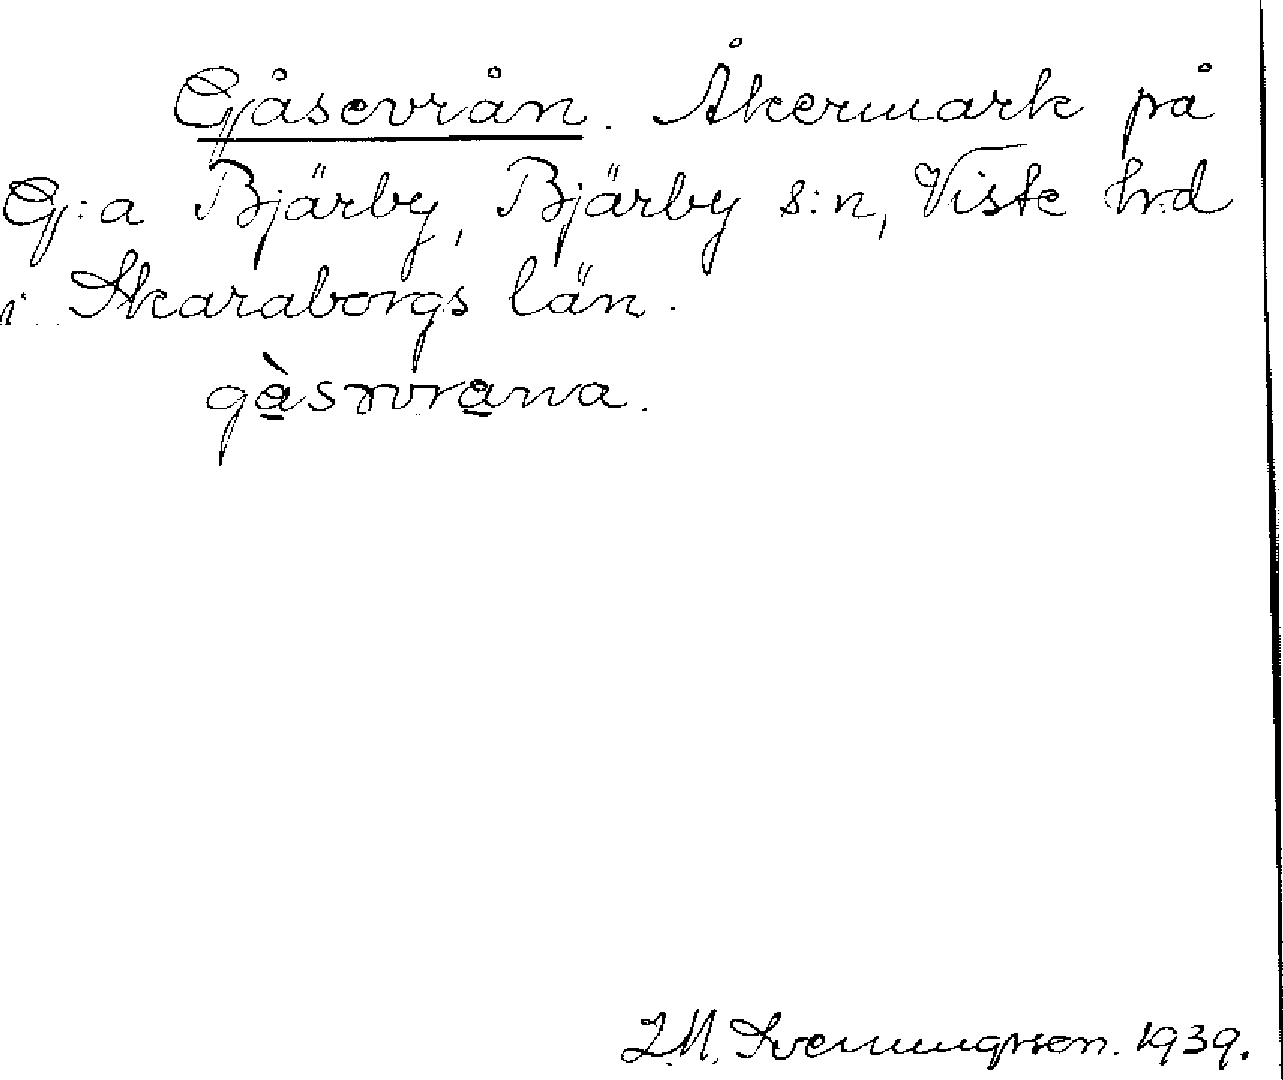 Gåsevrån. Åkermark på
G:a Bjärby, Bjärby s:n, Viste hrd
i Skaraborgs län.
gàsɤvrana.
J.M. Svenungsson. 1939.